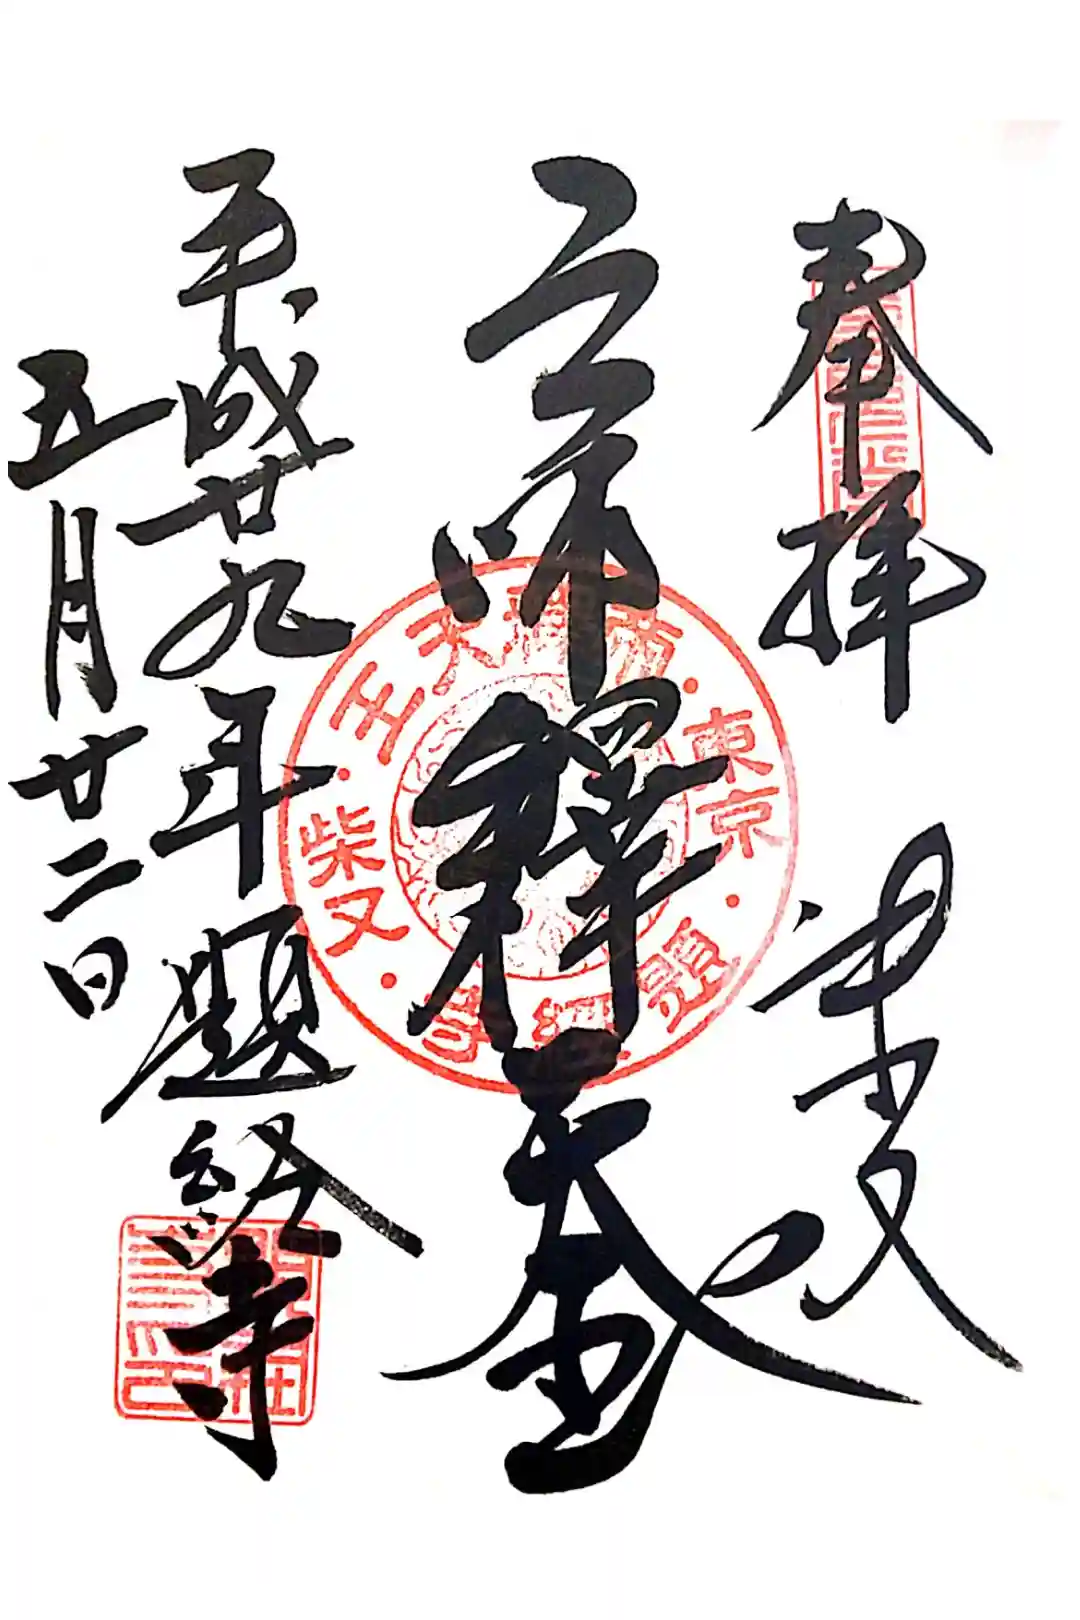 奉拝 柴又
帝釋天王
平成廿九年 題経寺
五月廿二日
東京
柴又
帝釋天王
題經寺